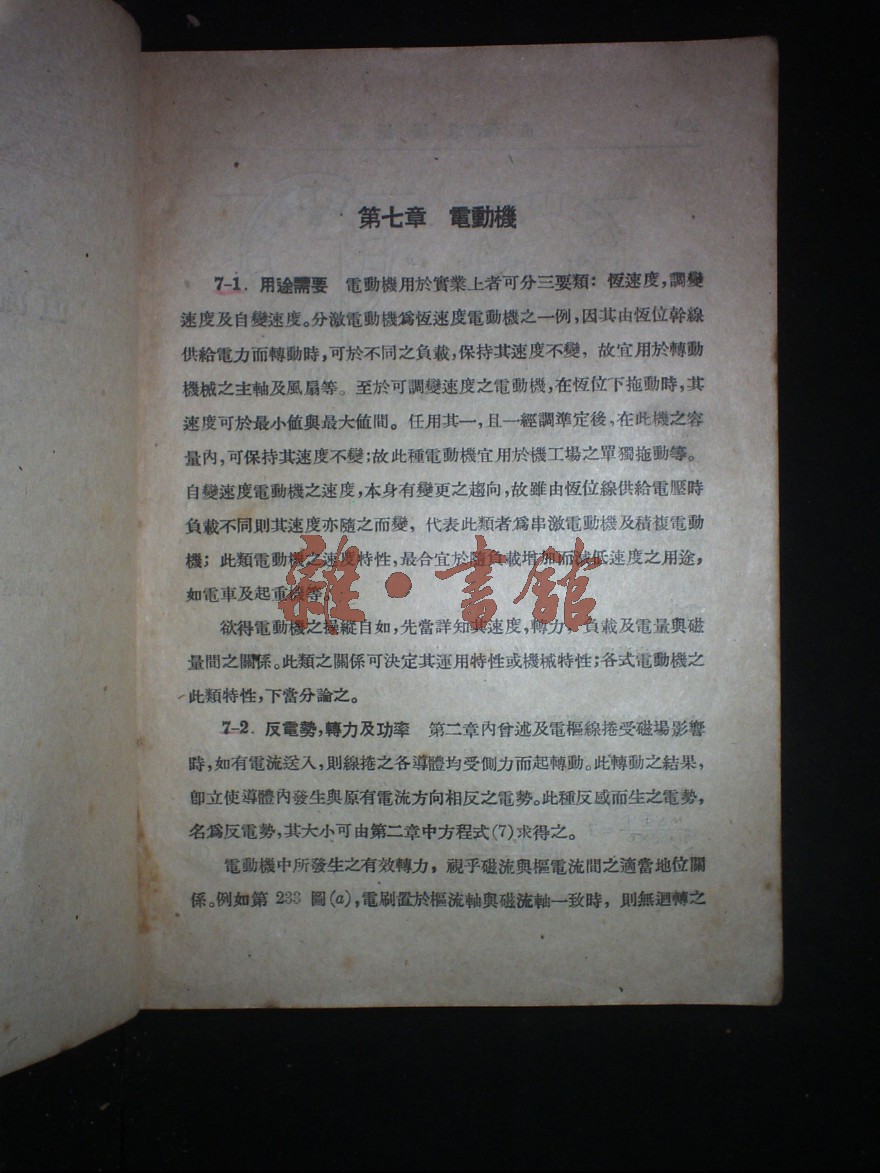 第七章 電動機
7-1. 用途需要 電動機用於實業上者可分三要類：恆速度，調變
速度及自變速度。分激電動機爲恆速度電動機之一例，因其由恆位幹線
供給電力而轉動時，可於不同之負載，保持其速度不變，故宜用於轉動
機械之主軸及風扇等。至於可調變速度之電動機，在恆位下拖動時，其
速度可於最小値與最大値間。任用其一，且一經調準定後，在此機之容
量內，可保持其速度不變；故此種電動機宜用於機工場之單獨拖動等。
自變速度電動機之速度，本身有變更之趨向，故雖由恆位線供給電壓時
負載不同則其速度亦隨之而變，代表此類者爲串激電動機及積複電動
機；此類電動機之速度特性，最合宜於隨負載增加而減低速度之用途，
如電車及起重機等。
雜·書館
欲得電動機之操縱自如，先當詳知其速度，轉力，負載及電量與磁
量間之關係。此類之關係可決定其運用特性或機械特性；各式電動機之
此類特性，下當分論之。
7-2. 反電勢，轉力及功率 第二章內曾述及電樞線捲受磁場影響
時，如有電流送入，則線捲之各導體均受側力而起轉動。此轉動之結果，
卽立使導體內發生與原有電流方向相反之電勢。此種反感而生之電勢，
名爲反電勢，其大小可由第二章中方程式(7)求得之。
電動機中所發生之有效轉力，視乎磁流與樞電流間之適當地位關
係。例如第 233 圖(a)，電刷置於樞流軸與磁流軸一致時，則無迴轉之